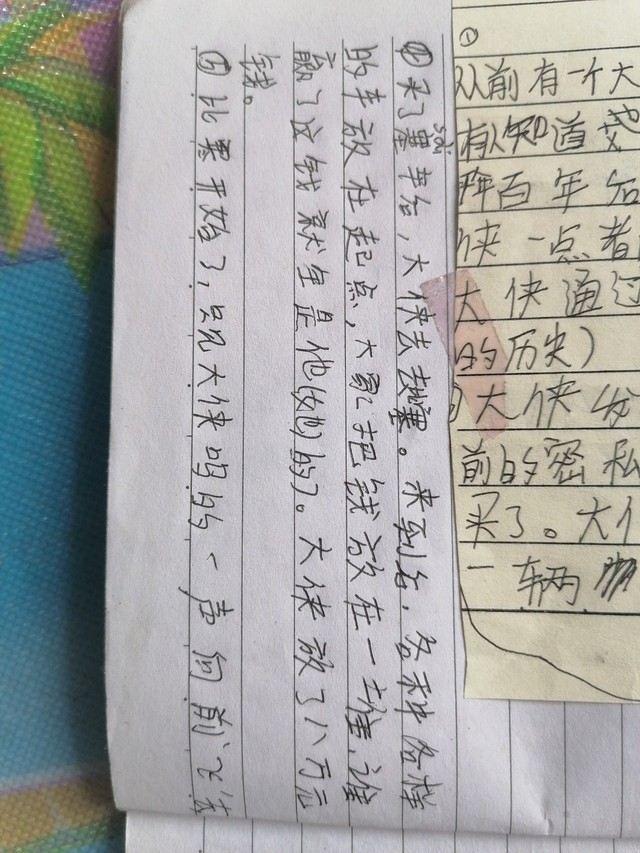 ①
从前有一个大
有人知道
百年后
侠一点着
大侠通过
的历史）
大侠发
前的密私
买了。大
一辆
④买了赛sài车后，大侠去去赛。来到后，各种各样
的车放在起点，大家把钱放在一堆，谁
赢了这钱就全是他(她)的了。大侠放了八万元
钱。
⑤比赛开始了，只见大侠呜的一声向前飞